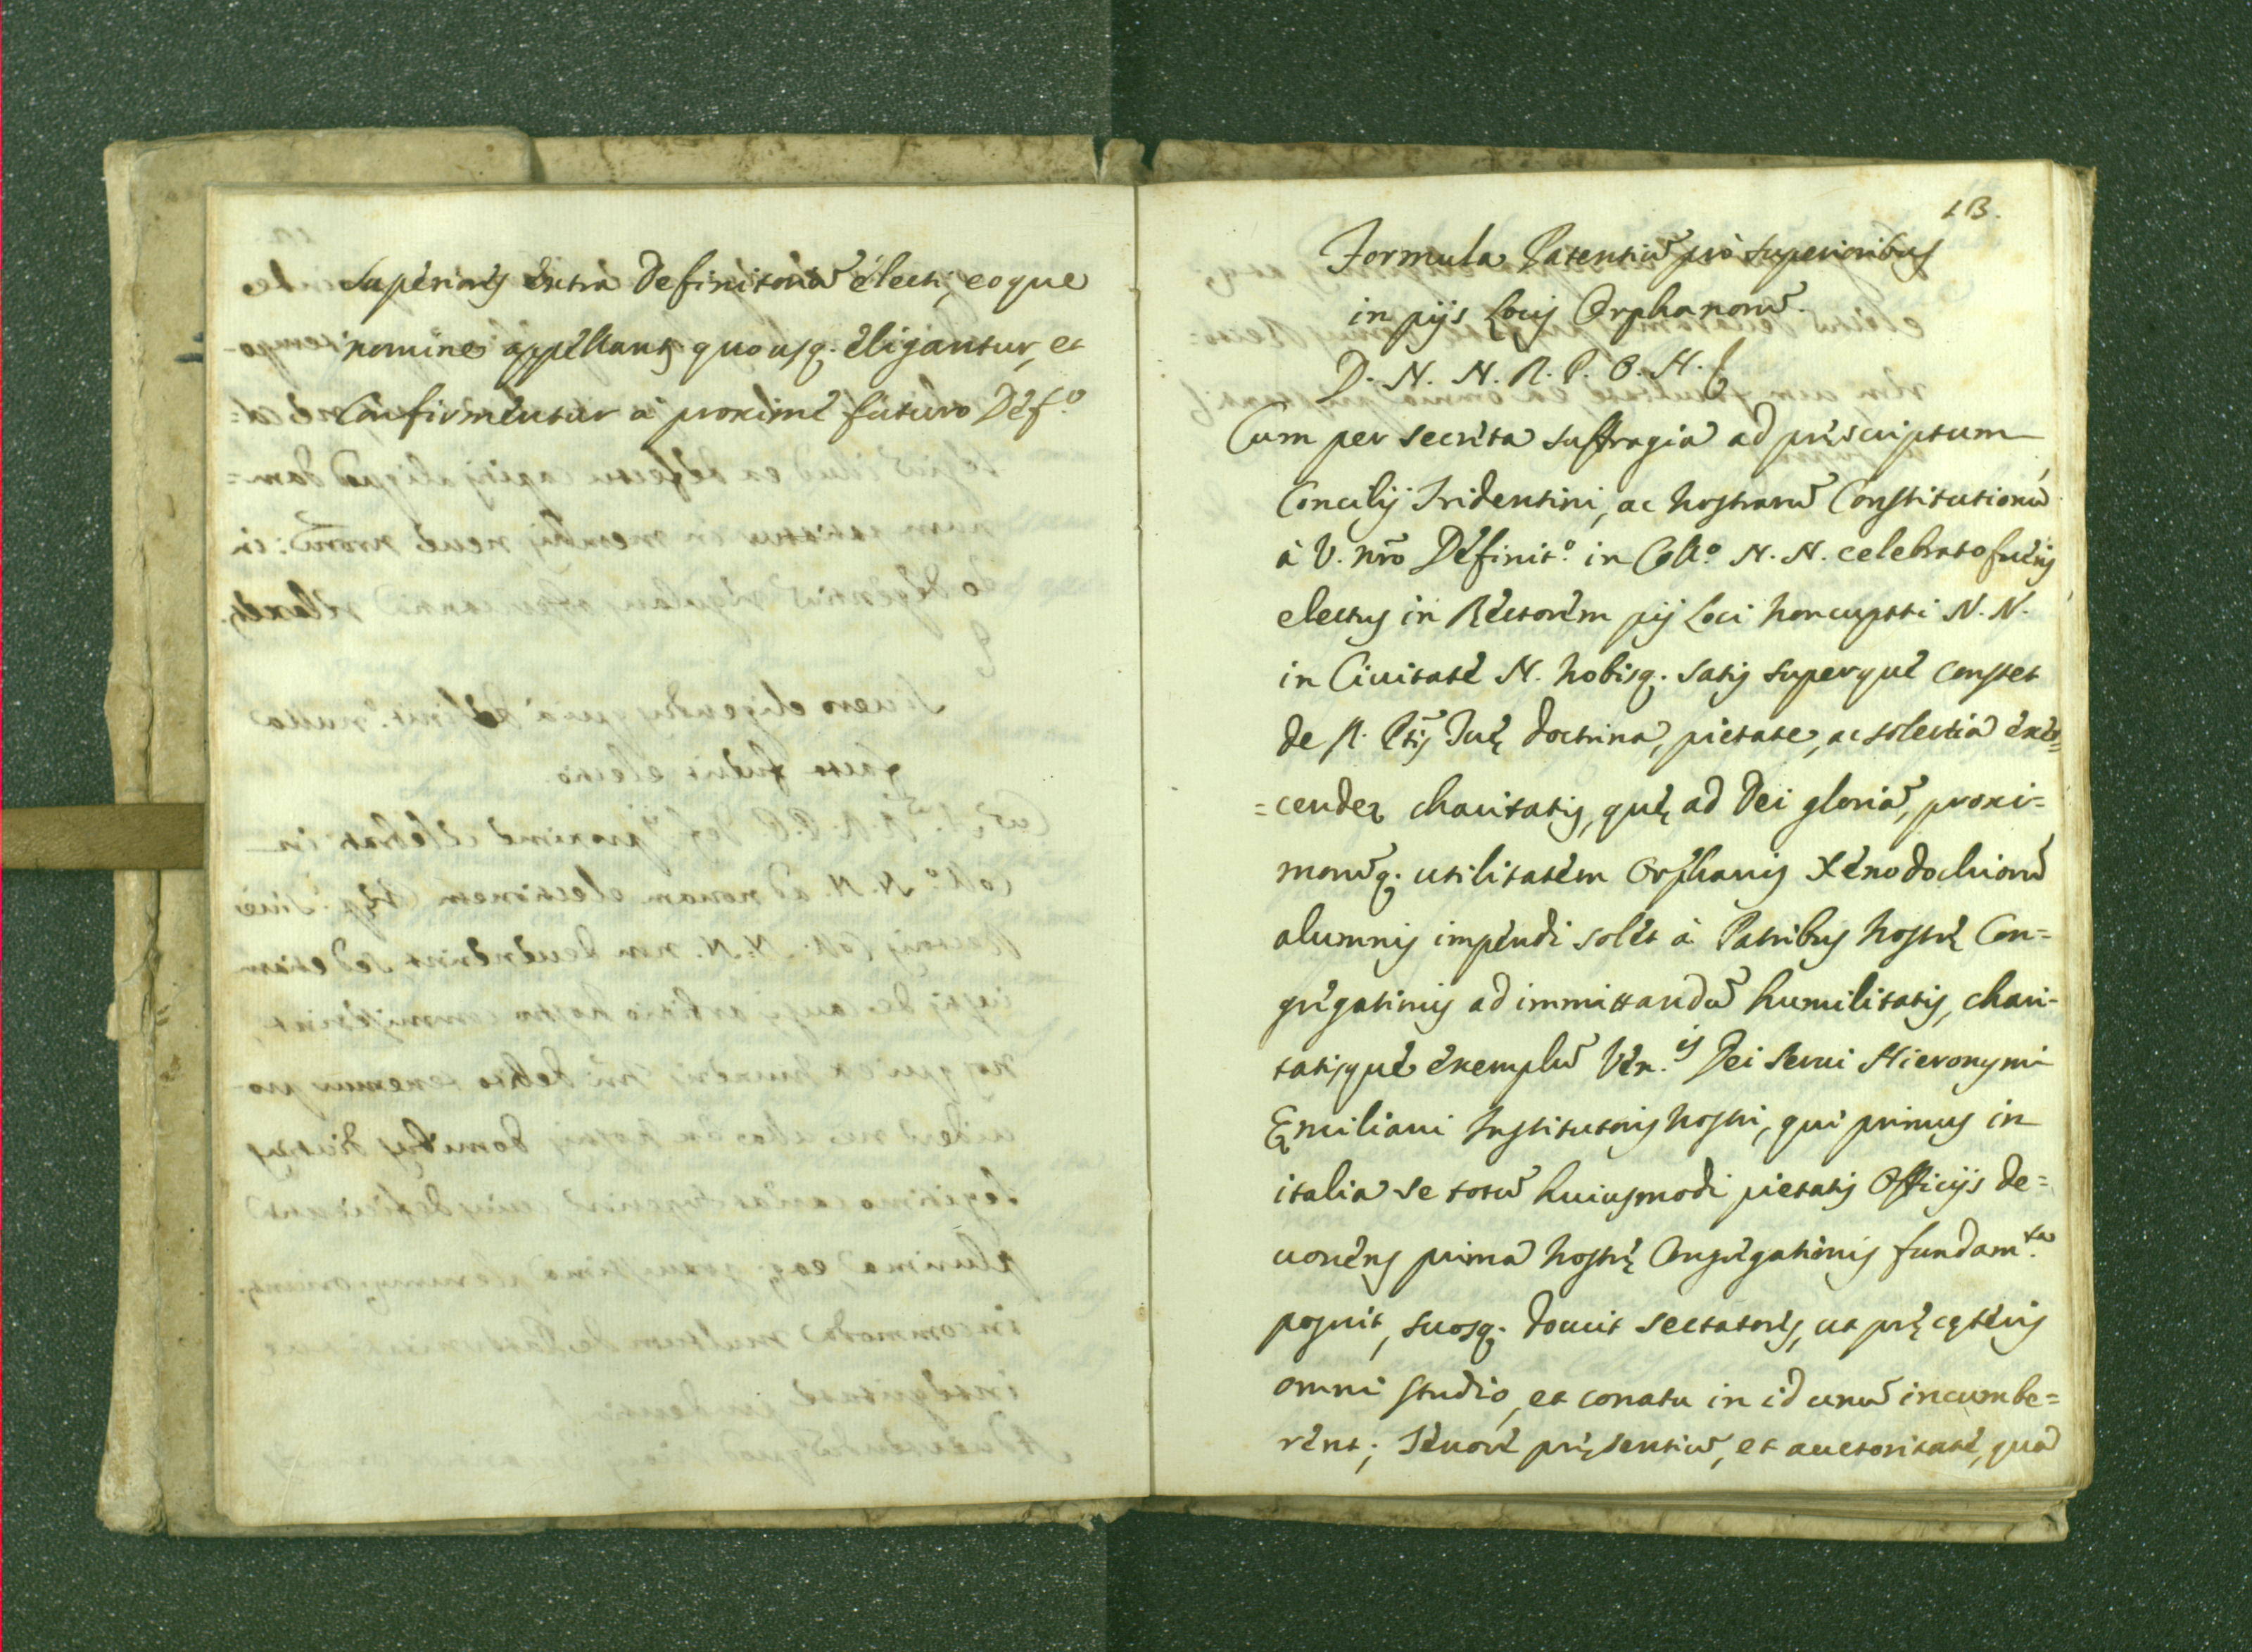 Superiores extra Definitoriũ electi, eoque
nomine appellant̃ quousq. eligantur, et
Confirmentur à proximè futuro Def.º
13.
Formula Patentiũ pro Superioribus
in pijs Locis Orphanorũ.
D. N. N. R. P. B. H.
Cum per secreta suffragia ad pręscriptum
Concilij Tridentini, ac nostrarũ Constitutionũ
à V. nr̃o Definit.º in Coll.º N. N. celebrato fueris
electus in Rectorem pij Loci noncupati N. N.
in Ciuitate N. nobisq. satis superque constet
de R. Ptĩs Tuę doctrina, pietate, ac solertia exer=
=cendę charitatis, quę ad Dei gloriã, proxi=
morũq. utilitatem Orphanis Xenodochiorũ
alumnis impendi solet à Patribus nostrę Con=
gregationis ad immittandũ humilitatis, chari-
tatisque exemplũ Ven.is Dei Serui Hieronymi
Ęmiliani Institutoris nostri, qui primus in
italia se totũ huiusmodi pietatis Officijs de=
uouens prima nostrę Congregationis fundam.ta
posuit, suosq. docuit sectatores, ut prę cęteris
omni studio, et conatu in id unũ incumbe=
rent; Tenore pręsentiũ, et auctoritate, qua